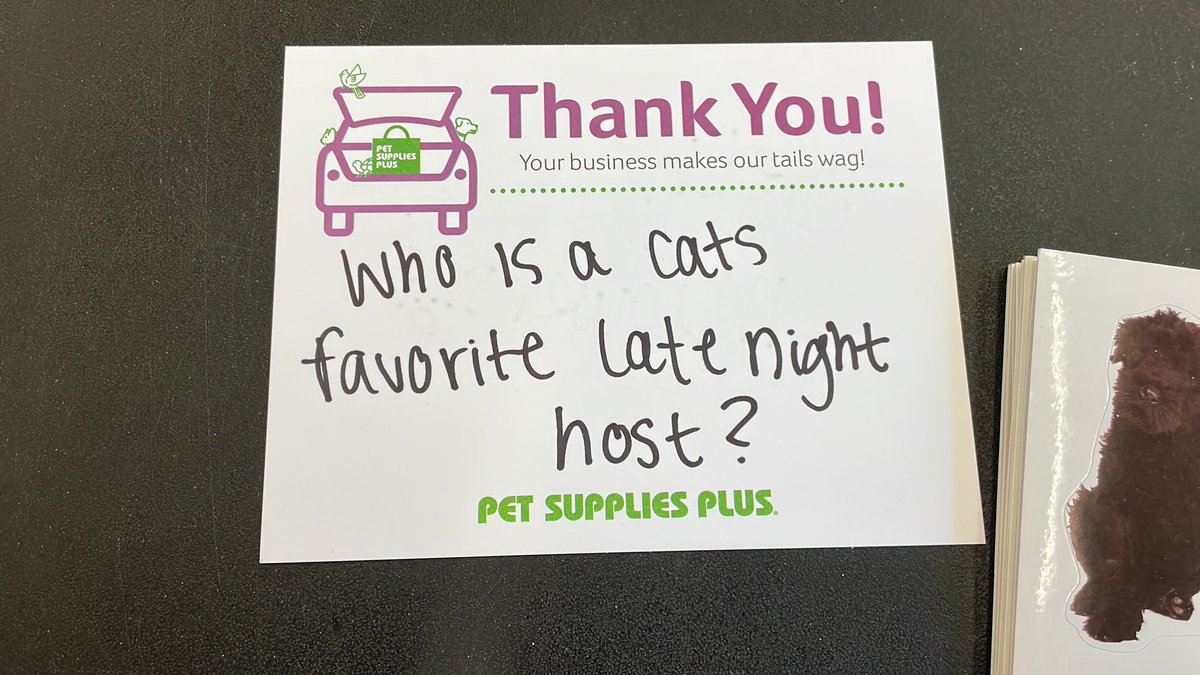 PET
SUPPLIES
PLUS
Thank You!
Your business makes our tails wag!
Who is a cats
favorite late night
host?
PET SUPPLIES PLUS®